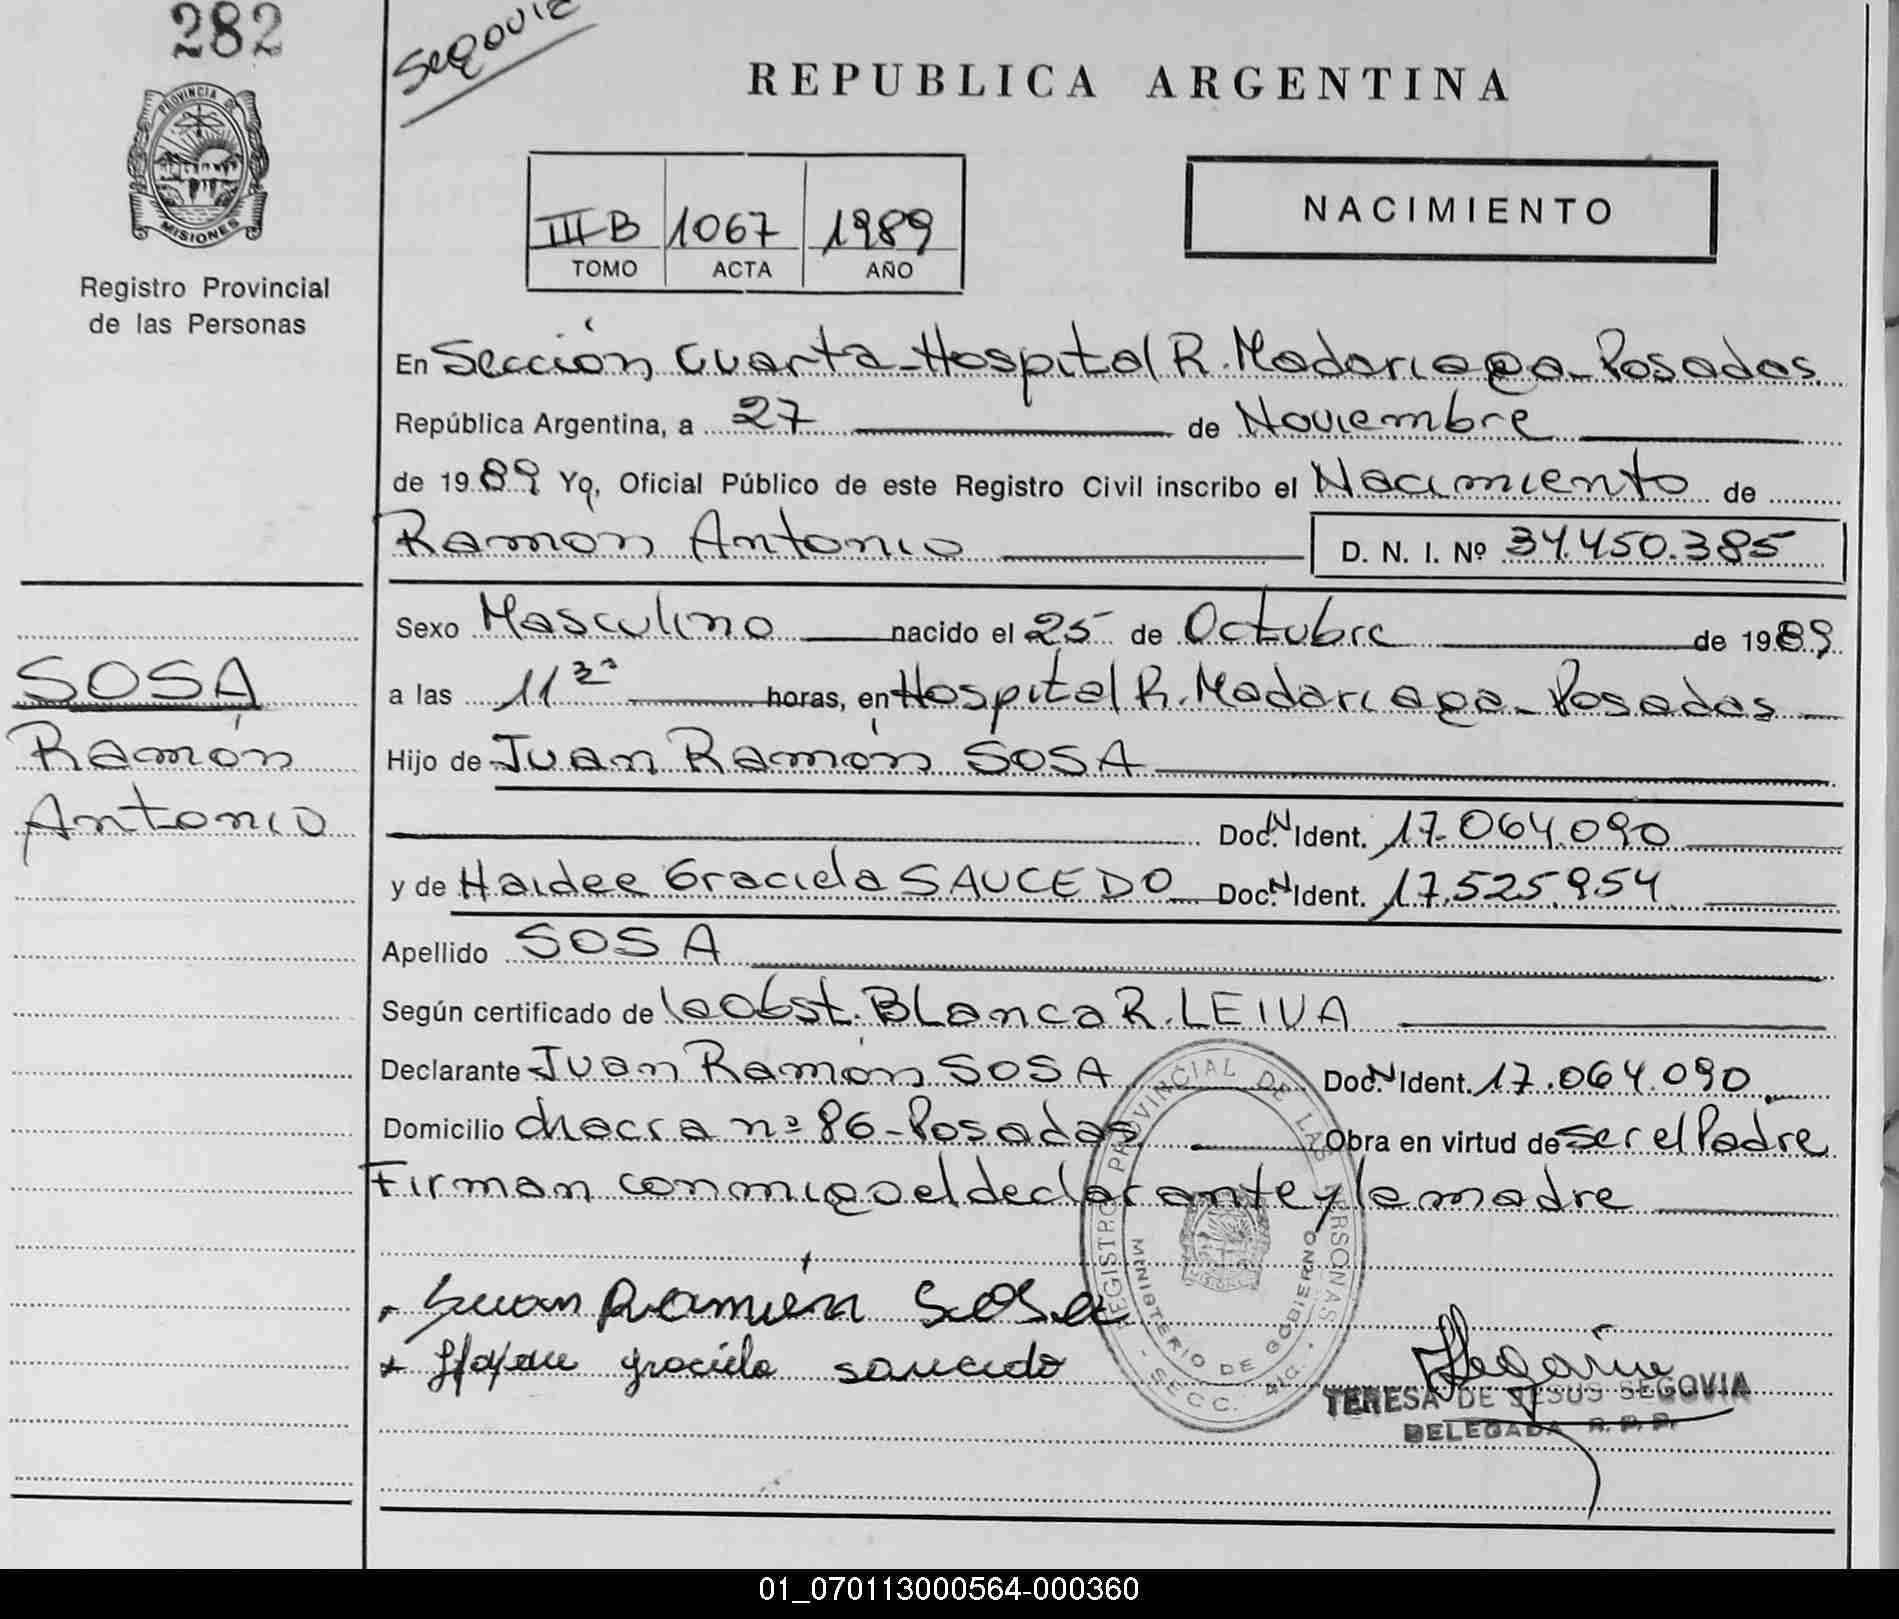 282
Segovia
PROVINCIA DE
MISIONES
Registro Provincial
de las Personas
REPUBLICA ARGENTINA
III-B 1067 1989
TOMO ACTA AÑO
NACIMIENTO
En Sección Cuarta-Hospital R. Madariaga-Posadas
República Argentina, a 27 de Noviembre
de 1989 Yo, Oficial Público de este Registro Civil inscribo el Nacimiento de
Ramón Antonio D. N. I. Nº 34.450.385
Sexo Masculino nacido el 25 de Octubre de 1989
SOSA
a las 11 30 horas, en Hospital R. Madariaga-Posadas
Ramón
Hijo de Juan Ramón SOSA
Antonio
Doc. N Ident. 17.064.090
y de Haidee Graciela SAUCEDO Doc. N Ident. 17.525.954
Apellido SOSA
Según certificado de la Obst. Blanca R. LEIVA
Declarante Juan Ramón SOSA Doc. N Ident. 17.064.090
Domicilio chacra nº 86-Posadas Obra en virtud de ser el Padre
Firman conmigo el declarante y la madre
REGISTRO PROVINCIAL DE LAS PERSONAS
MINISTERIO DE GOBIERNO
- SECC. 4ta. -
Juan Ramón Sosa
graciela saucedo
TERESA DE JESUS SEGOVIA
DELEGADA R. P. P.
01_070113000564-000360